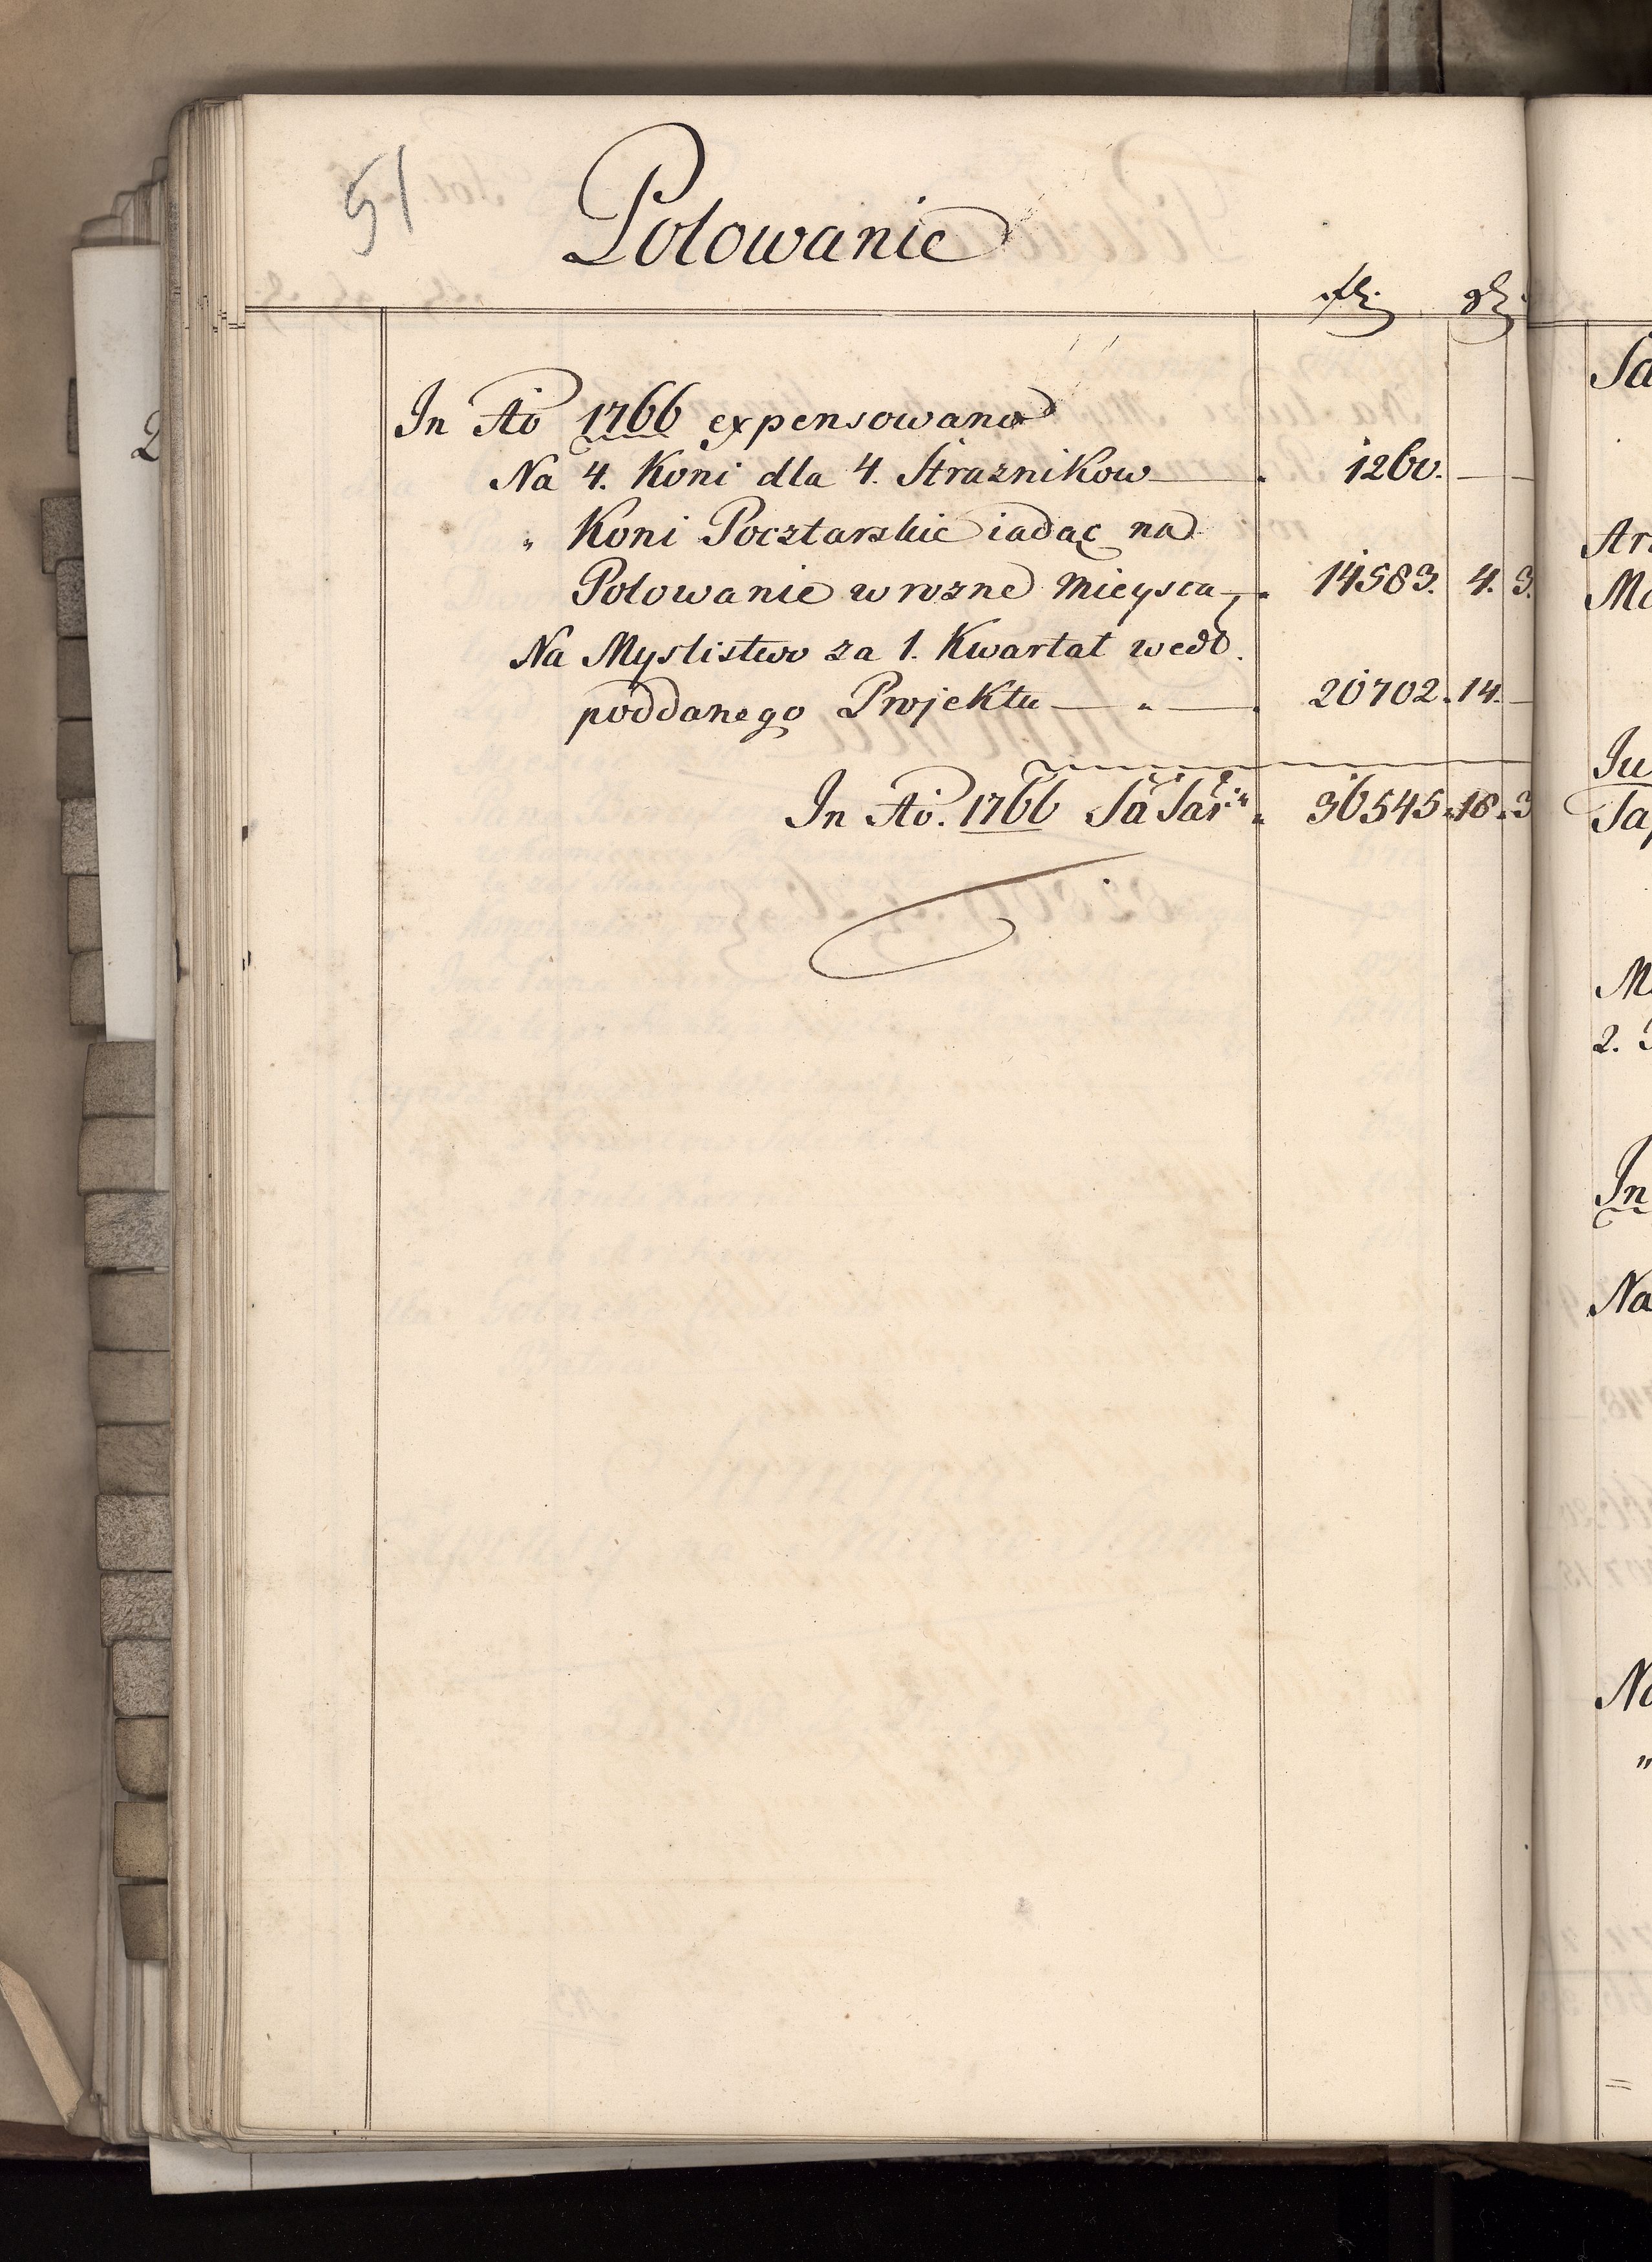 51
Polowanie
fl. gl.
In Ao 1766 expensowano
Na 4. Koni dla 4. Straznikow 1260. —
„ Koni Pocztarskie iadąc na
Polowanie w rozne Mieysca 14583. 4. 3.
Na Myslistwo za 1. Kwartał wedł.
poddanego Projektu — „ — 20702. 14. —
In Ao. 1766 Sa Sar. 36545. 18. 3